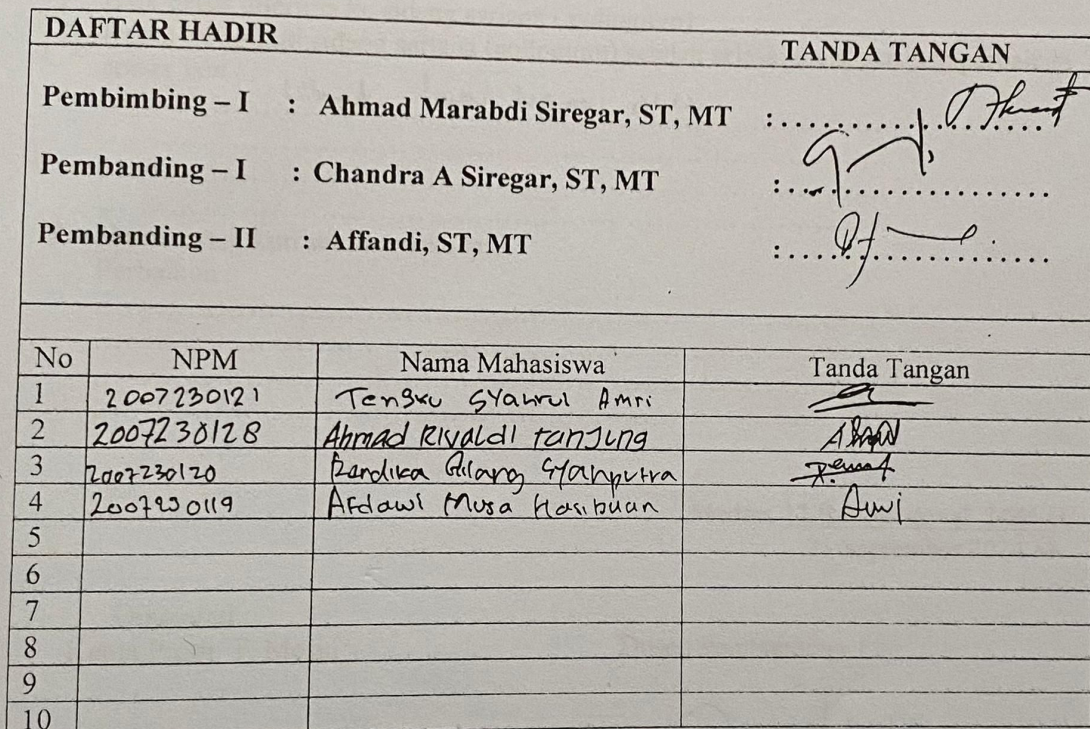 DAFTAR HADIR
TANDA TANGAN
Pembimbing – I : Ahmad Marabdi Siregar, ST, MT :..............................
Pembanding – I : Chandra A Siregar, ST, MT :..............................
Pembanding – II : Affandi, ST, MT :..............................
No NPM Nama Mahasiswa Tanda Tangan
1 2007230121 Tengku Syahrul Amri
2 2007230128 Ahmad Rivaldi tanjung
3 2007230120 Randika Gilang Syahputra
4 2007230119 Ardawi Musa Hasibuan
5
6
7
8
9
10